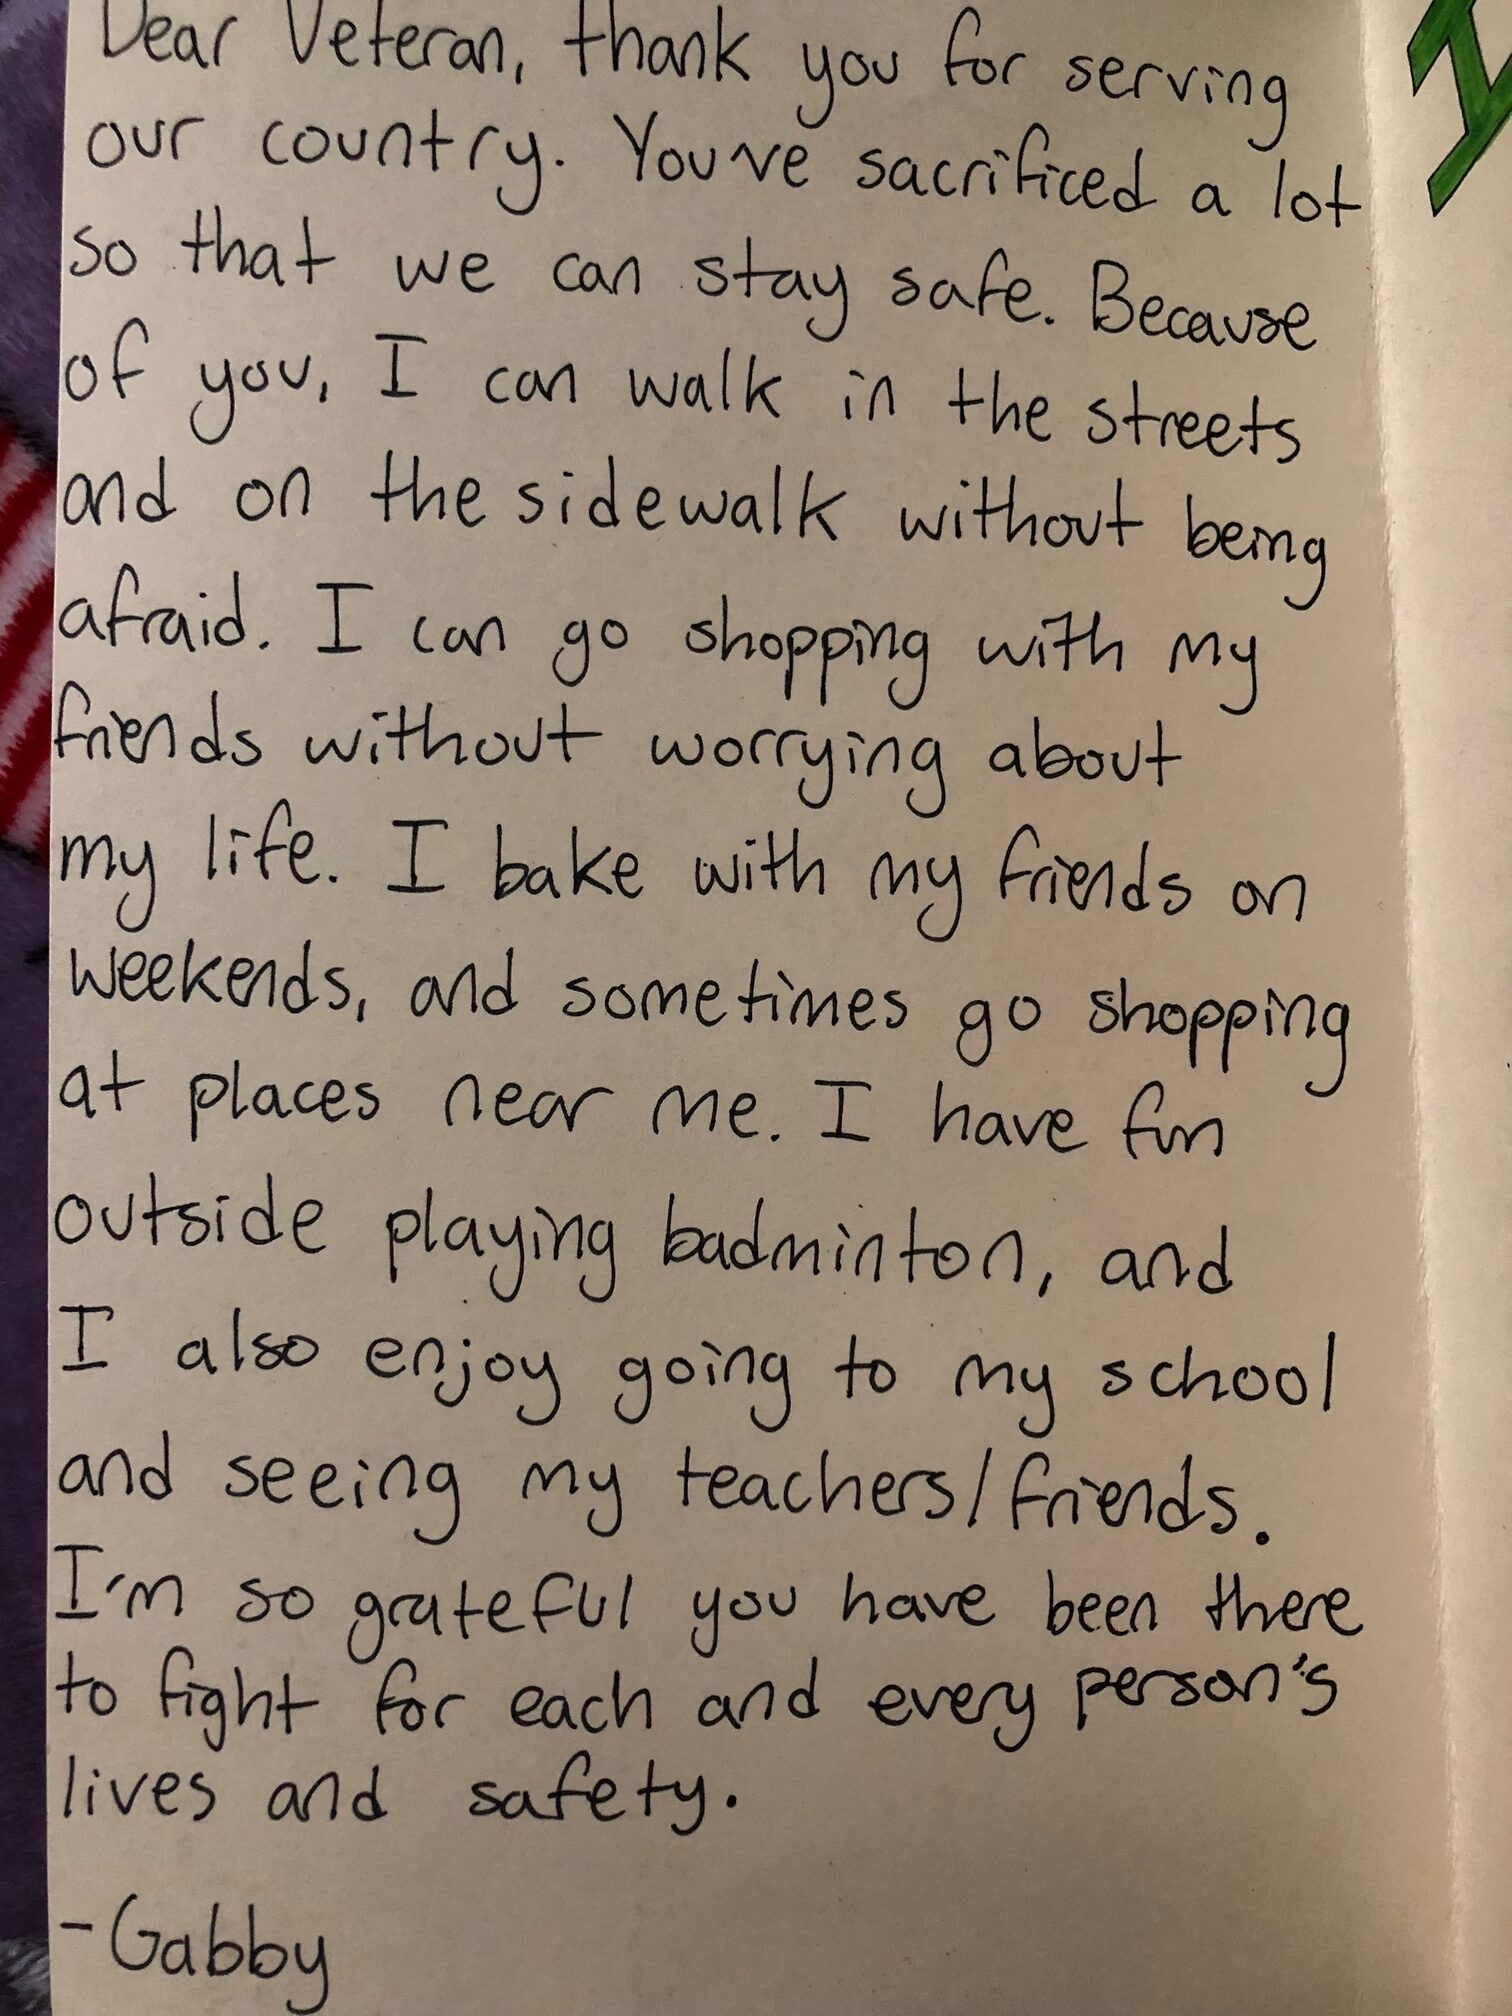 Dear Veteran, thank you for serving
our country. You've sacrificed a lot
so that we can stay safe. Because
of you, I can walk in the streets
and on the sidewalk without being
afraid. I can go shopping with my
friends without worrying about
my life. I bake with my friends on
weekends, and sometimes go shopping
at places near me. I have fun
outside playing badminton, and
I also enjoy going to my school
and seeing my teachers/friends.
I'm so grateful you have been there
to fight for each and every person's
lives and safety.
-Gabby